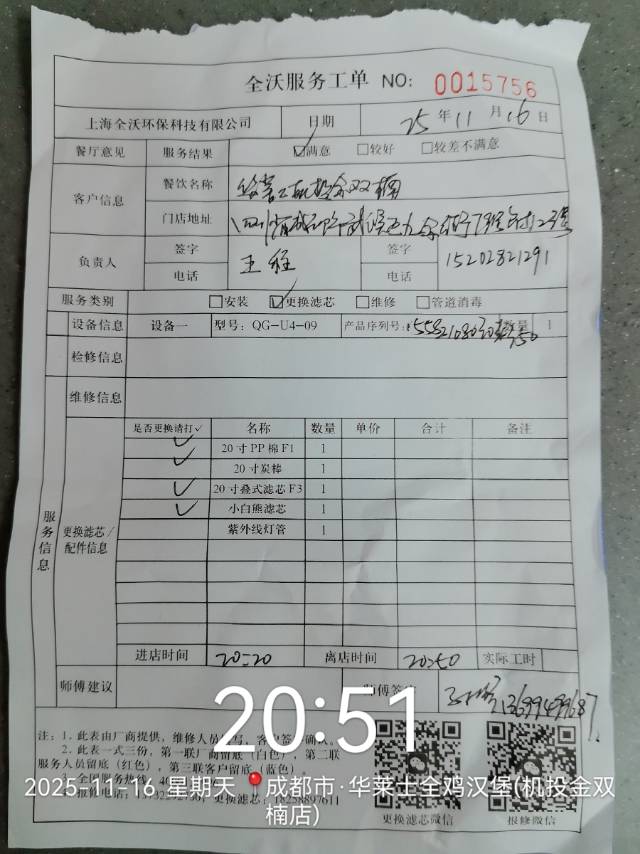 全沃服务工单 NO: 0015756
上海全沃环保科技有限公司 日期 25 年 11 月 16 日
餐厅意见 服务结果 ☑满意 □较好 □较差不满意
客户信息 餐饮名称
门店地址
负责人 签字 王 签字
电话 电话 15202821291
服务类别 □安装 ☑更换滤芯 □维修 □管道消毒
设备信息 设备一 型号: QG-U4-09 产品序列号: 数量 1
检修信息
维修信息
服务信息
更换滤芯/配件信息
是否更换请打✓ 名称 数量 单价 合计 备注
✓ 20寸PP棉F1 1
✓ 20寸炭棒 1
✓ 20寸叠式滤芯F3 1
✓ 小白熊滤芯 1
紫外线灯管 1
进店时间 20:20 离店时间 20:50 实际工时
师傅建议 师傅签
20:51
注: 1. 此表由厂商提供, 维修人员 写, 客户签 确认。
2. 此表一式三份, 第一联厂商留底（白色）, 第二联
服务人员留底（红色）, 第三联客户留底（蓝色）
3. 全国服务热线: 40
4. 报修电话: 更换滤芯: 18258897611
更换滤芯微信 报修微信
2025-11-16 星期天 📍成都市·华莱士全鸡汉堡(机投金双
楠店)